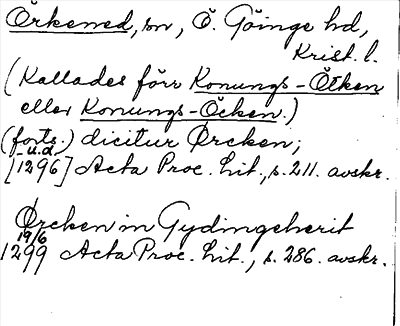 Örkened, sn, Ö. Göinge hd,
Krist. l.
(Kallades förr Konungs-Ötken
eller Konungs-Öcken.)
(forts.) dicitur Ørcken;
- u.d.
[1296] Acta Proc. Lit., s. 211. avskr.
Ørcken in Gydingeherit
19/6
1299 Acta Proc. Lit., s. 286. avskr.